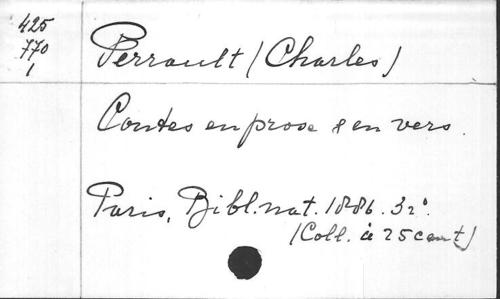 425
770
1
Perrault (Charles)
Contes en prose & en vers.
Paris, Bibl. nat. 1886. 32°.
(Coll. à 25 cent)